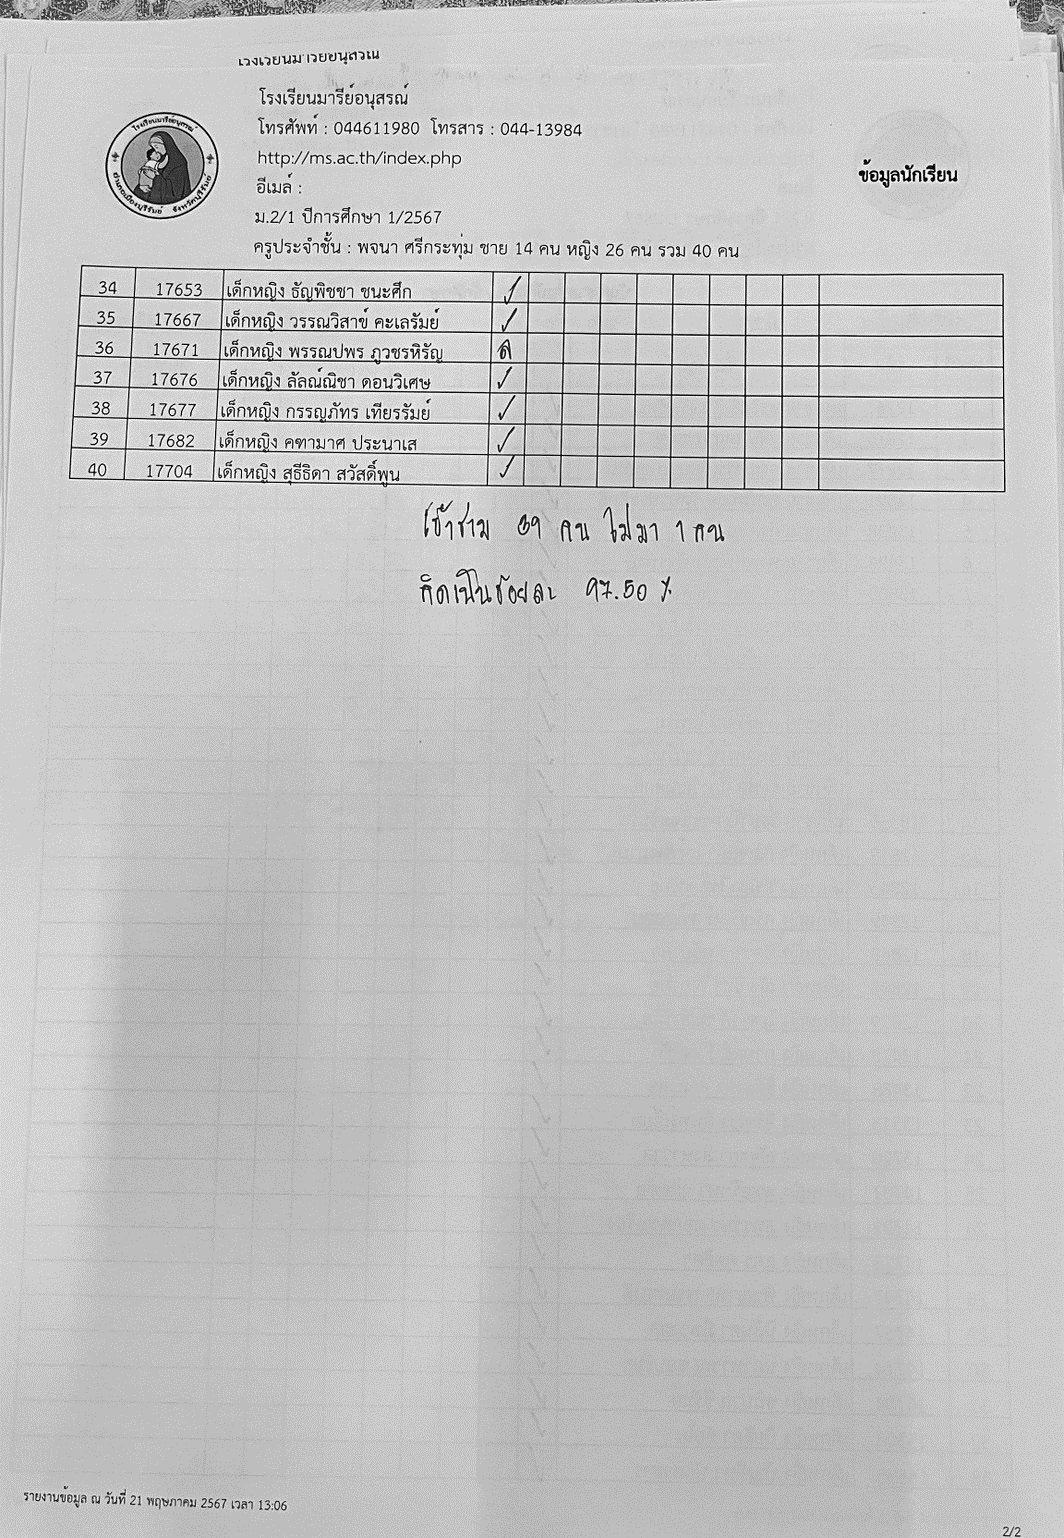 โรงเรียนมารีย์อนุสรณ์
โรงเรียนมารีย์อนุสรณ์
โทรศัพท์ : 044611980 โทรสาร : 044-13984
http://ms.ac.th/index.php
ข้อมูลนักเรียน
อีเมล์ :
ม.2/1 ปีการศึกษา 1/2567
ครูประจำชั้น : พจนา ศรีกระทุ่ม ชาย 14 คน หญิง 26 คน รวม 40 คน
34 17653 เด็กหญิง ธัญพิชชา ชนะศึก ✓
35 17667 เด็กหญิง วรรณวิสาข์ คะเลรัมย์ ✓
36 17671 เด็กหญิง พรรณปพร ภูวชรหิรัญ ล
37 17676 เด็กหญิง ลัลณ์ณิชา ดอนวิเศษ ✓
38 17677 เด็กหญิง กรรญภัทร เทียรรัมย์ ✓
39 17682 เด็กหญิง คฑามาศ ประนาเส ✓
40 17704 เด็กหญิง สุธีธิดา สวัสดิ์พูน ✓
เข้าร่วม 39 คน ไม่มา 1 คน
คิดเป็นร้อยละ 97.50 %
รายงานข้อมูล ณ วันที่ 21 พฤษภาคม 2567 เวลา 13:06
2/2